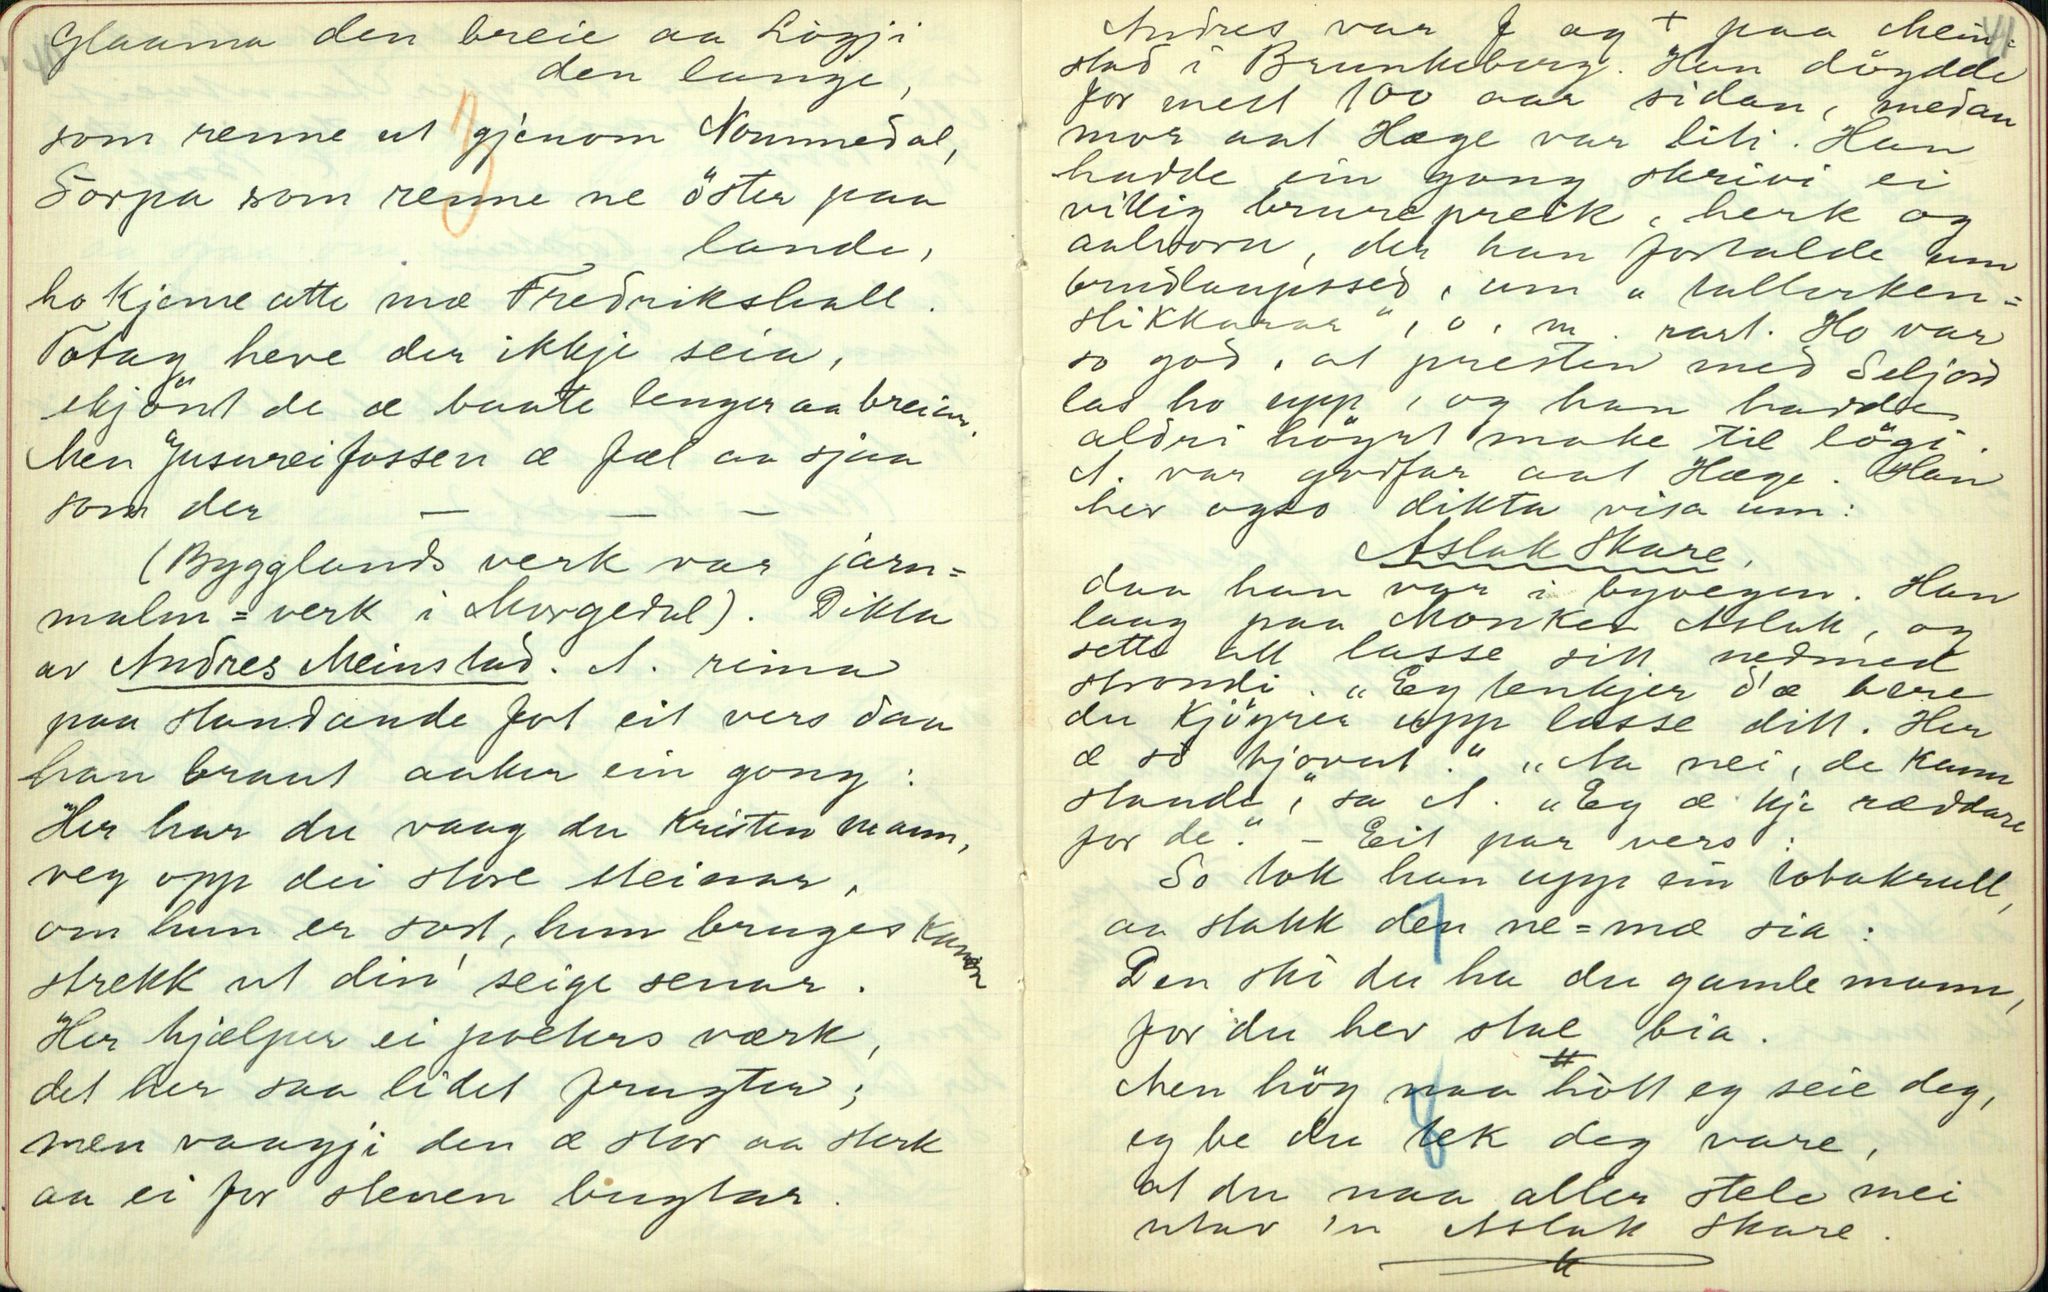 Glaama den breie aa Lögji
den lange,
som renne ut gjenom Nommedal,
Sorpa som renne ne öster paa
lande,
ho kjeme atte mæ Fredrikshall.
Totag heve der ikkje seia,
skjönt de æ baate lenger aa breiar.
Men Jusureifossen æ fæl aa sjaa
som der — — —
(Bygglands verk var jarn=
malm=verk i Morgedal). Dikta
av Andres Meinstad. A. rima
paa standande fot eit vers daa
han braut aaker ein gong:
Her har du vaag du kristen mann,
veg opp dei store steinar,
om hun er sort, hun bruges kann
strekk ut din' seige senar.
Her hjælper ei poeters værk,
det her saa lidet frugter;
men vaagji den æ stor aa sterk
aa ei for stenen bugtar.
Andres var f og + paa Mein=
stad i Brunkeberg. Han döydde
for mest 100 aar sidan, medan
mor aat Hæge var liti. Han
hadde ein gong skrivi ei
villig brurepreik, herk og
aalvorn, der han fortalde um
brudlaupssed, um "tallerken=
slikkarar", o. m. rart. Ho var
so god, at presten med Seljord
las ho upp, og han hadde
aldri höyrt make til lögi.
A. var godfar aat Hæge. Han
hev ogso dikta visa um:
Aslak Skare,
daa han var i byvegen. Han
laag paa Monken Aslak, og
sette att lasse sitt nedmed
strondi. "Eg tenkjer d'æ bære
du kjöyrer upp lasse ditt. Her
æ so tjovut." "Aa nei, de kann
stande," sa A. "Eg æ kje ræddare
for de." – Eit par vers:
So tok han upp ein tobakrull,
aa stakk den ne=mæ sia:
Den ski du ha du gamle mann,
for du hev stae bia.
Men höy naa hòtt eg seie deg,
eg be du tek deg vare,
at du naa aller stele mei
utav 'n Aslak Skare.